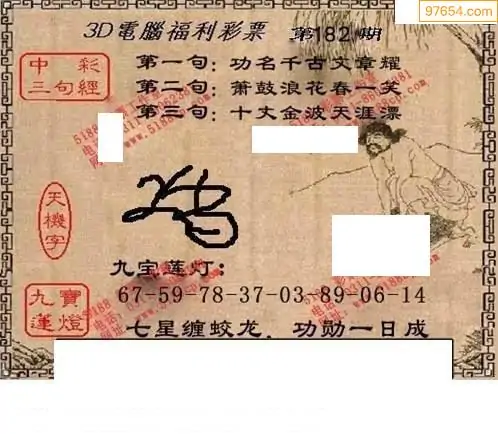 97654.com
3D電腦福利彩票 第182期
中彩三句經
第一句：功名千古文章耀
第二句：萧鼓浪花春一笑
第三句：十丈金波天涯漂
天機字
九寶蓮燈
九宝莲灯：
67-59-78-37-03-89-06-14
七星缠蛟龙．功勋一日成